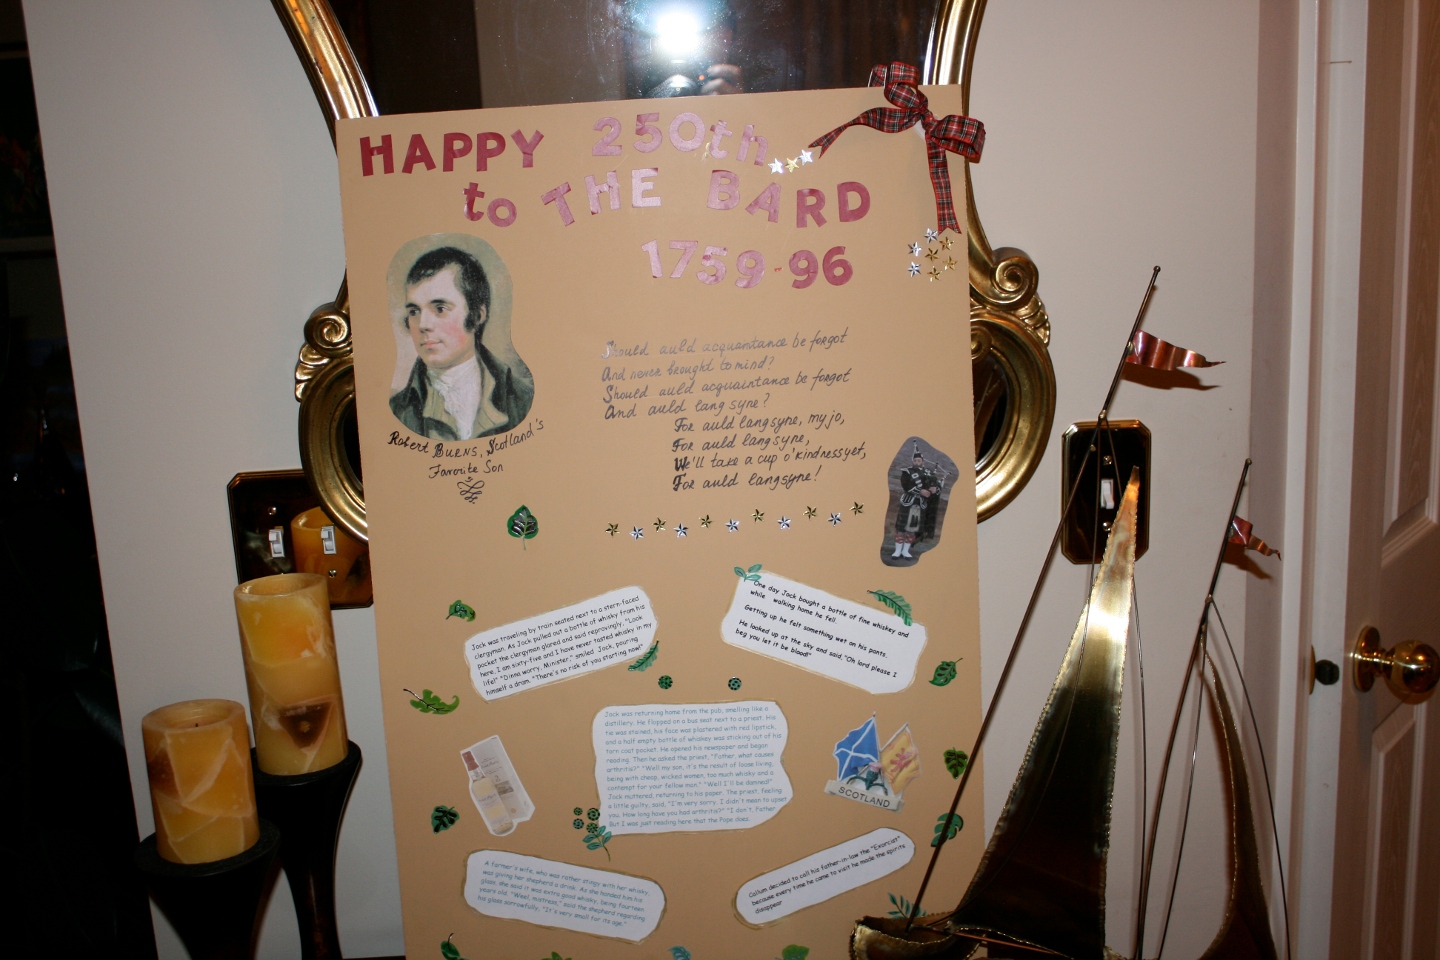 HAPPY 250th
to THE BARD
1759-96
Robert BURNS, Scotland's
Favorite Son
Should auld acquaintance be forgot
And never brought to mind?
Should auld acquaintance be forgot
And auld lang syne?
For auld langsyne, my jo,
For auld langsyne,
We'll take a cup o'kindness yet,
For auld langsyne!
Jock was traveling by train seated next to a stern-faced
clergyman. As Jock pulled out a bottle of whisky from his
pocket the clergyman glared and said reprovingly, "Look
here, I am sixty-five and I have never tasted whisky in my
life!" "Dinna worry, Minister," smiled Jock, pouring
himself a dram. "There's no risk of you starting now!"
One day Jock bought a bottle of fine whiskey and
while walking home he fell.
Getting up he felt something wet on his pants.
He looked up at the sky and said, "Oh lord please I
beg you let it be blood!"
Jock was returning home from the pub, smelling like a
distillery. He flopped on a bus seat next to a priest. His
tie was stained, his face was plastered with red lipstick,
and a half empty bottle of whiskey was sticking out of his
torn coat pocket. He opened his newspaper and began
reading. Then he asked the priest, "Father, what causes
arthritis?" "Well my son, it's the result of loose living,
being with cheap, wicked women, too much whisky and a
contempt for your fellow man." "Well I'll be damned!"
Jock muttered, returning to his paper. The priest, feeling
a little guilty, said, "I'm very sorry, I didn't mean to upset
you. How long have you had arthritis?" "I don't, Father.
But I was just reading here that the Pope does.
SCOTLAND
A farmer's wife, who was rather stingy with her whisky,
was giving her shepherd a drink. As she handed him his
glass, she said it was extra good whisky, being fourteen
years old. "Weel, mistress," said the shepherd regarding
his glass sorrowfully, "It's very small for its age."
Callum decided to call his father-in-law the "Exorcist"
because every time he came to visit he made the spirits
disappear